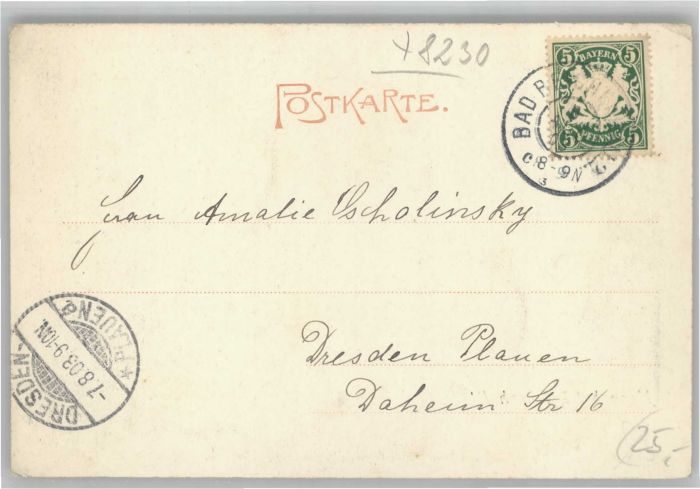 +8230
POSTKARTE.
5 BAYERN 5
5 PFENNIG 5
BAD
8-9N
Frau Amalie Oscholinsky
DRESDEN-PLAUEN
-7.8.03.9-10N.
Dresden Plauen
Daheim Str 16
25,-